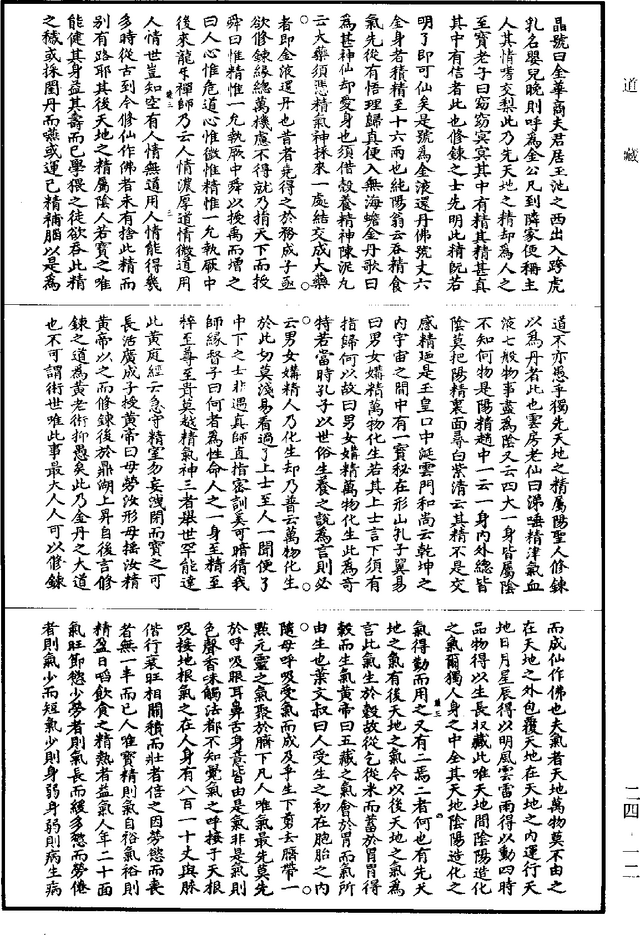 道藏
晶號曰金華商夫君居玉池之西出入跨虎
乳名嬰兒晚則呼為金公凡到隣家便稱主
人其情嗜交梨此乃先天地之精却為人之
至寶老子曰窈窈冥冥其中有精其精甚真
其中有信者此也修鍊之士先明此精既若
明了即可仙矣是號為金液還丹佛號丈六
金身者積精至十六兩也純陽翁云吞精食
氣先從有悟理歸真便入無海蟾金丹歌曰
為甚神仙却愛身也須借殼養精神陳泥丸
云大藥須憑精氣神採來一處結交成大藥
者即金液還丹也昔者堯得之於務成子亟
欲修鍊緣總萬機慮不得就乃揖天下而授
舜曰惟精惟一允執厥中舜以授禹而增之
曰人心惟危道心惟微惟精惟一允執厥中
後來龍牙禪師乃云人情濃厚道情微道用
人情世豈知空有人情無道用人情能得幾
多時從古到今修仙作佛者未有捨此精而
別有路耶其後天地之精屬陰人若寶之唯
能健其身益其壽而已學猥之徒欲吞此精
之穢或採閨丹而嚥或運己精補腦以是為
道不亦愚乎獨先天地之精屬陽聖人修鍊
以為丹者此也雲房老仙曰涕唾精津氣血
液七般物事盡為陰又云四大一身皆屬陰
不知何物是陽精趙中一云一身內外總皆
陰莫把陽精裏面尋白紫清云其精不是交
感精迺是玉皇口中涎雲門和尚云乾坤之
內宇宙之間中有一寶秘在形山孔子翼易
曰男女媾精萬物化生若其上士言下須有
指歸何以故曰男女媾精萬物化生此為奇
特若當時孔子以世俗生養之說為言則必
云男女媾精人乃化生却乃普云萬物化生
於此切莫淺易看過了上士至人一聞便了
中下之士非遇真師直指密訓奚可暗猜我
師緣督子曰何者為性命人之一身至精至
粹至尊至貴莫越精氣神三者舉世罕能達
此黃庭經云急守精室勿妄洩閉而寶之可
長活廣成子授黃帝曰毋勞汝形毋搖汝精
黃帝以之而修鍊後於鼎湖上昇自後言修
鍊之道為黃老術抑愚矣此乃金丹之大道
也不可謂術世唯此事最大人人可以修鍊
而成仙作佛也夫氣者天地萬物莫不由之
在天地之外包覆天地在天地之內運行天
地日月星辰得以明風雲雷雨得以動四時
品物得以生長收藏此唯天地間陰陽造化
之氣爾獨人身之中全其天地陰陽造化之
氣得勤而用之又有二焉二者何也有先天
地之氣有後天地之氣今以後天地之氣為
言此氣生於穀故從乞從米而蓄於胃胃得
穀而生氣黃帝曰五藏之氣會於胃而氣所
由生也葉文叔曰人受生之初在胞胎之內
隨母呼吸受氣而成及乎生下剪去臍帶一
點元靈之氣聚於臍下凡人唯氣最先莫先
於呼吸眼耳鼻舌身意皆由是氣非是氣則
色聲香味觸法都不知覺氣之呼接于天根
吸接地根氣之在人身有八百一十丈與脉
偕行衰旺相關積而壯者倍之因勞慾而喪
者無一半而已人唯寶精則氣自裕氣裕則
精盈日啗飲食之精熱者益氣人年二十而
氣旺節慾少勞者則氣長而緩多慾而勞倦
者則氣少而短氣少則身弱身弱則病生病
二四·一二